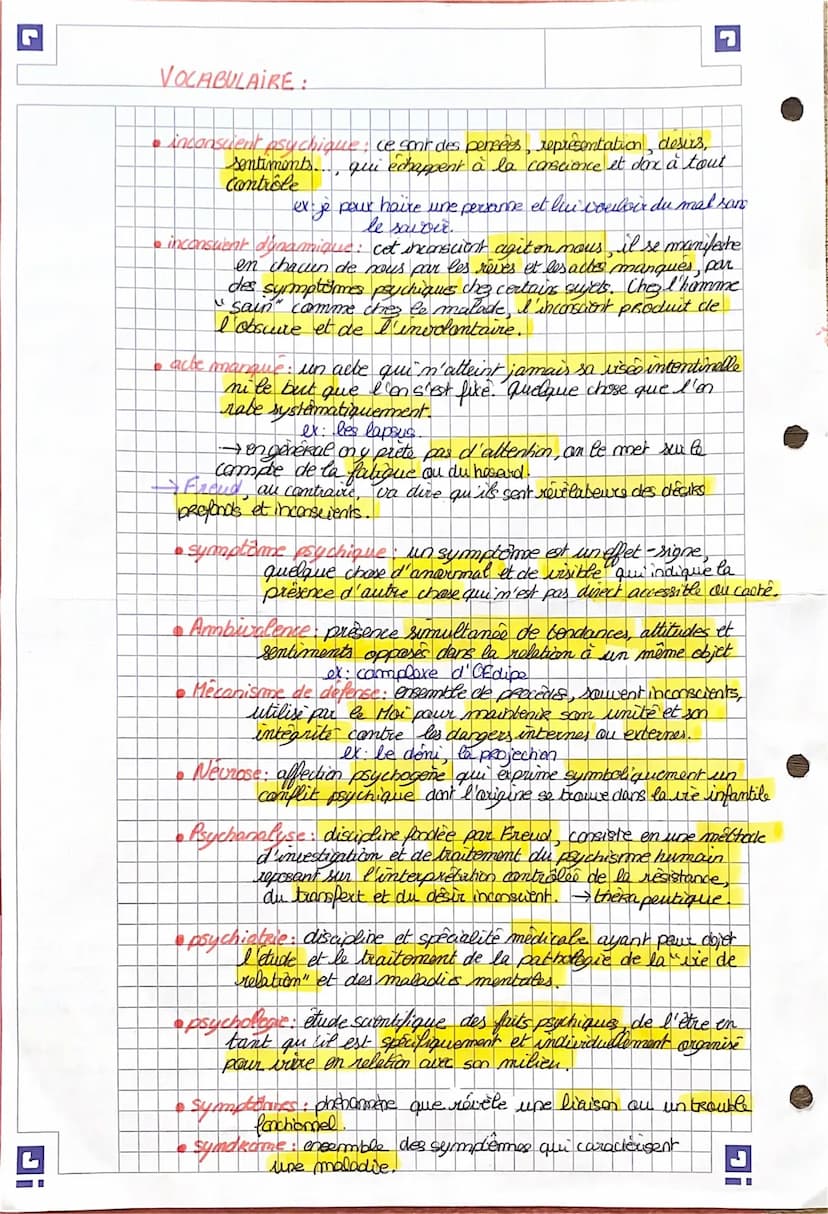 VOCABULAIRE :
• inconscient psychique : ce sont des pensées, représentation, désirs,
sentiments..., qui échappent à la conscience et donc à tout
contrôle
ex: je peux haire une personne et lui vouloir du mal sans
le savoir.
• inconscient dynamique : cet inconscient agit en nous, il se manifeste
en chacun de nous par les rêves et les actes manqués, par
des symptômes psychiques chez certains sujets. Chez l'homme
"sain" comme chez le malade, l'inconscient produit de
l'obscure et de l'involontaire.
• acte manqué : un acte qui n'atteint jamais sa visée intentinelle
ni le but que l'on s'est fixé. Quelque chose que l'on
rate systématiquement.
ex: les lapsus.
→ en général on y prête pas d'attention, on le met sur le
compte de la fatigue ou du hasard.
→ Freud, au contraire, va dire qu'ils sont révélateurs des désirs
profonds et inconscients.
• symptôme psychique : un symptôme est un effet-signe,
quelque chose d'anormal et de visible qui indique la
présence d'autre chose qui n'est pas direct accessible ou caché.
• Ambivalence : présence simultanée de tendances, attitudes et
sentiments opposés dans la relation à un même objet
ex: complexe d'Œdipe
• Mécanisme de défense : ensemble de procédés, souvent inconscients,
utilisé par le Moi pour maintenir son unité et son
intégrité contre les dangers internes ou externes.
ex: le déni, la projection
• Névrose : affection psychogène qui exprime symboliquement un
conflit psychique dont l'origine se trouve dans la vie infantile
• Psychanalyse : discipline fondée par Freud, consiste en une méthode
d'investigation et de traitement du psychisme humain
reposant sur l'interprétation contrôlée de la résistance,
du transfert et du désir inconscient. → thérapeutique.
• psychiatrie : discipline et spécialité médicale ayant pour objet
l'étude et le traitement de la pathologie de la "vie de
relation" et des maladies mentales.
• psychologie : étude scientifique des faits psychiques, de l'être en
tant qu'il est spécifiquement et individuellement organisé
pour vivre en relation avec son milieu.
• symptômes : phénomène que révèle une liaison ou un trouble
fonctionnel.
• syndrome : ensemble des symptômes qui caractérisent
une maladie.